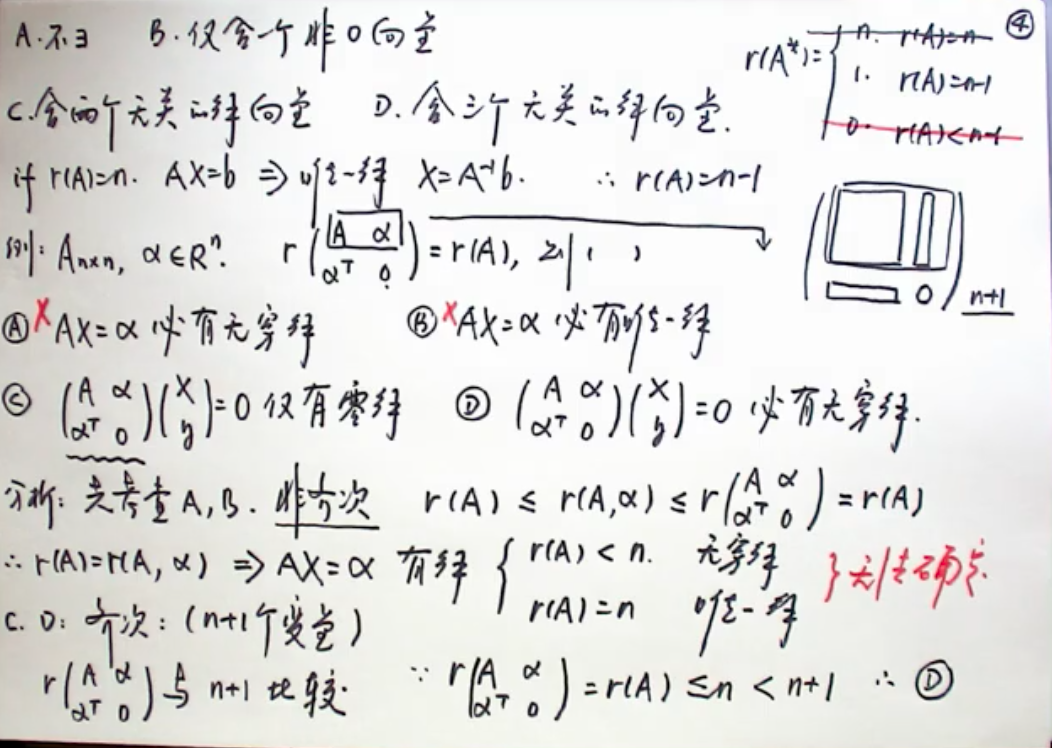 ④
A.不∃ B.仅含一个非0向量
r(A*)= { n. r(A)=n
1. r(A)=n-1
0. r(A)<n-1
C.含两个无关的解向量 D.含三个无关的解向量.
if r(A)=n. AX=b ⇒ 唯一解 X=A⁻¹b. ∴ r(A)=n-1
例: Aₙₓₙ, α∈Rⁿ. r(A α; αᵀ 0)=r(A), 则( )
0 n+1
Ⓐ X AX=α 必有无穷解 Ⓑ X AX=α 必有唯一解
Ⓒ (A α; αᵀ 0)(X; y)=0 仅有零解 Ⓓ (A α; αᵀ 0)(X; y)=0 必有无穷解.
分析: 先考查A,B. 非齐次 r(A) ≤ r(A,α) ≤ r(A α; αᵀ 0)=r(A)
∴ r(A)=r(A,α) ⇒ AX=α 有解 { r(A)<n. 无穷解
r(A)=n 唯一解 } 无法确定.
C. D: 齐次: (n+1个变量)
r(A α; αᵀ 0)与 n+1 比较. ∵ r(A α; αᵀ 0)=r(A)≤n<n+1 ∴ Ⓓ